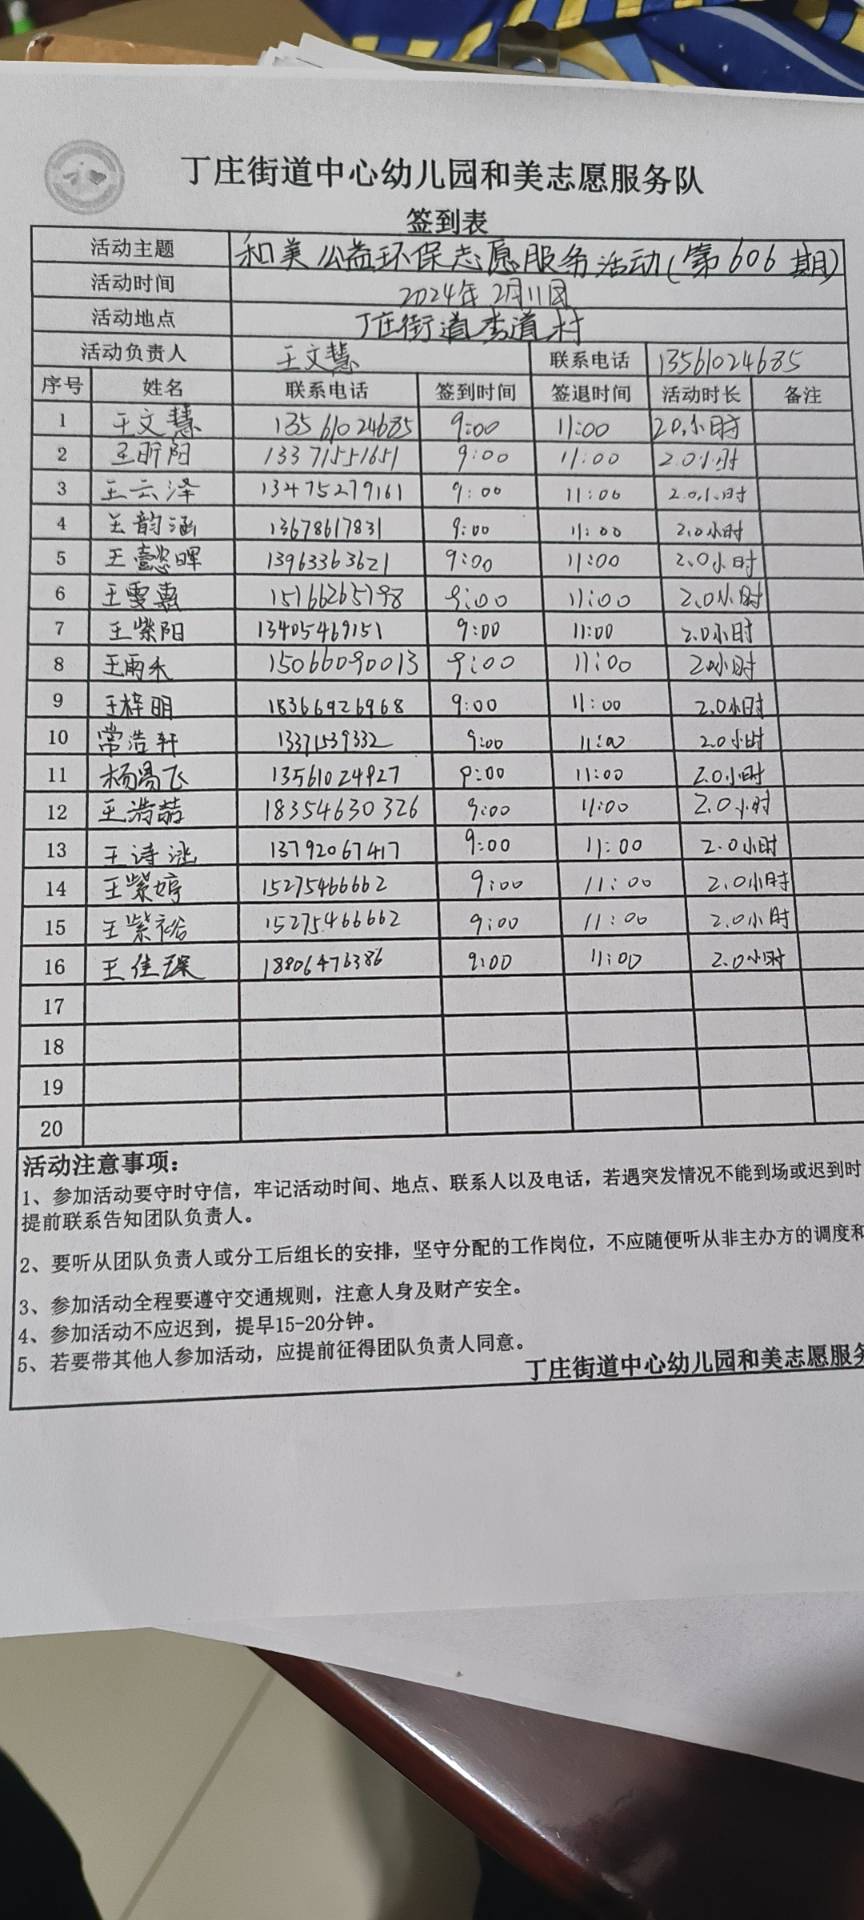 丁庄街道中心幼儿园和美志愿服务队
签到表
活动主题 和美公益环保志愿服务活动(第606期)
活动时间 2024年2月11日
活动地点 丁庄街道李道村
活动负责人 王文慧 联系电话 13561024685
序号 姓名 联系电话 签到时间 签退时间 活动时长 备注
1 王文慧 13561024685 9:00 11:00 2.0小时
2 王昕阳 13371551651 9:00 11:00 2.0小时
3 王云泽 13475279161 9:00 11:00 2.0小时
4 王韵涵 13678617831 9:00 11:00 2.0小时
5 王懿晖 13963363621 9:00 11:00 2.0小时
6 王雯嘉 15166265798 9:00 11:00 2.0小时
7 王紫阳 13405469151 9:00 11:00 2.0小时
8 王雨禾 15066090013 9:00 11:00 2.0小时
9 王梓明 18366926968 9:00 11:00 2.0小时
10 常浩轩 13371539332 9:00 11:00 2.0小时
11 杨 飞 13561024927 9:00 11:00 2.0小时
12 王浩喆 18354630326 9:00 11:00 2.0小时
13 王诗涵 13792067417 9:00 11:00 2.0小时
14 王紫婷 15275466662 9:00 11:00 2.0小时
15 王紫裕 15275466662 9:00 11:00 2.0小时
16 王佳琛 18806476386 9:00 11:00 2.0小时
17
18
19
20
活动注意事项：
1、参加活动要守时守信，牢记活动时间、地点、联系人以及电话，若遇突发情况不能到场或迟到时
提前联系告知团队负责人。
2、要听从团队负责人或分工后组长的安排，坚守分配的工作岗位，不应随便听从非主办方的调度和
3、参加活动全程要遵守交通规则，注意人身及财产安全。
4、参加活动不应迟到，提早15-20分钟。
5、若要带其他人参加活动，应提前征得团队负责人同意。
丁庄街道中心幼儿园和美志愿服务